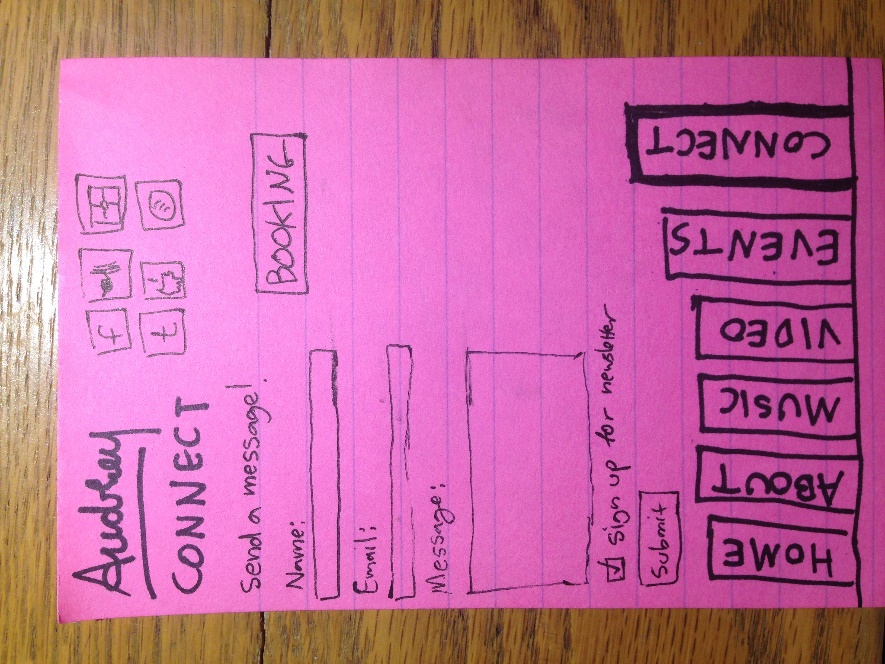 Audrey
CONNECT
f
t
Send a message!
BOOKING
Name:
Email:
Message:
Sign up for newsletter
Submit
HOME
ABOUT
MUSIC
VIDEO
EVENTS
CONNECT